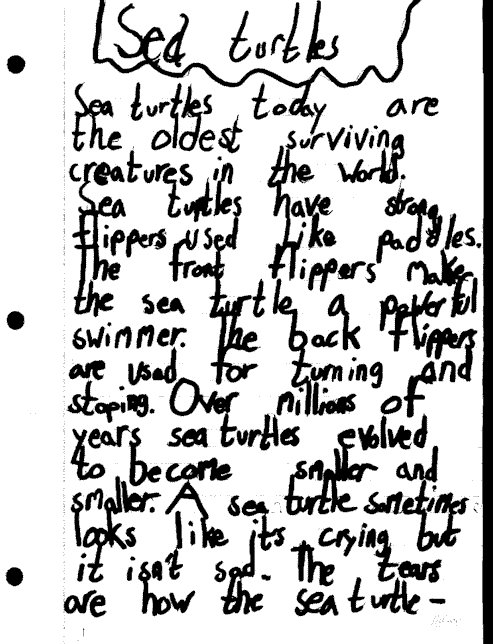 Sea turtles
Sea turtles today are
the oldest surviving
creatures in the world.
Sea turtles have strong
flippers used like paddles.
The front flippers make
the sea turtle a powerful
swimmer. The back flippers
are used for turning and
stoping. Over millions of
years sea turtles evolved
to become smaller and
smaller. A sea turtle sometimes
looks like its crying but
it isn't sad. The tears
are how the sea turtle -